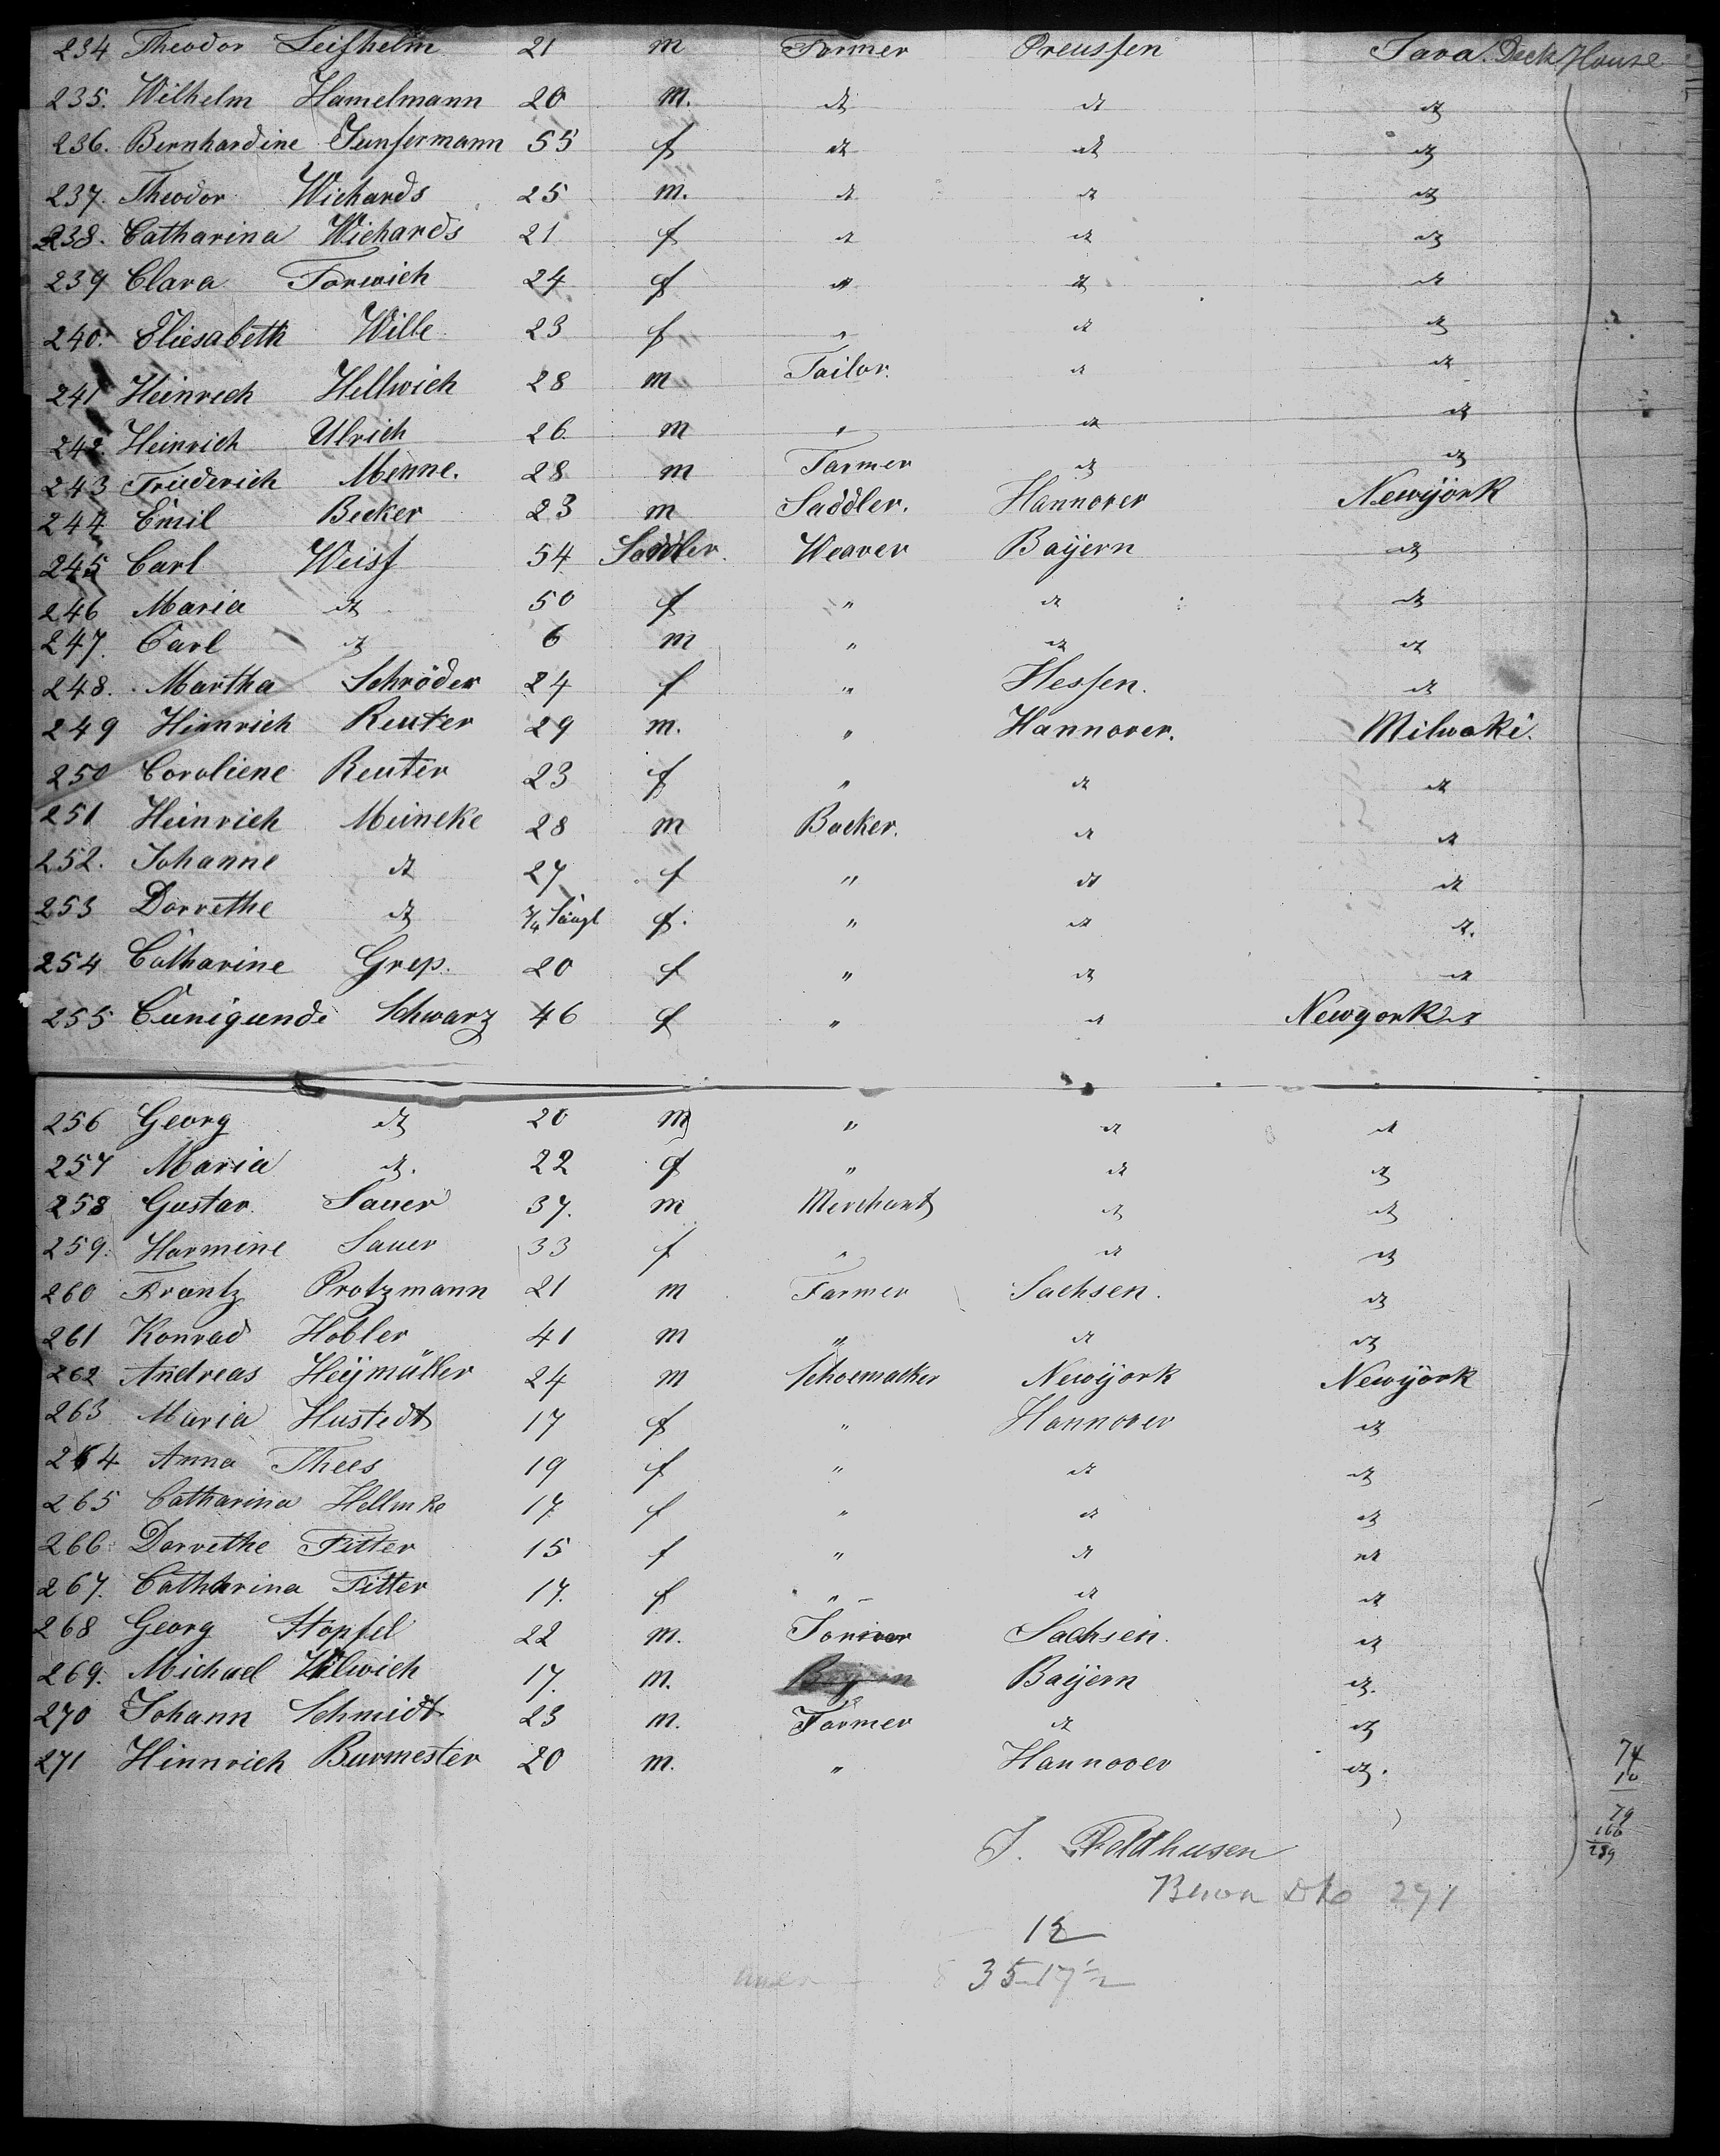 234 Theodor Leifhelm 21 m Farmer Preussen Java. Deck House
235. Wilhelm Hamelmann 20 m. dt dt dt
236. Bernhardine Junfermann 55 f dt dt dt
237. Theodor Wichards 25 m. dt dt dt
238. Catharina Wichards 21 f dt dt dt
239 Clara Forwich 24 f " dt dt
240. Eliesabeth Wille 23 f " dt dt
241 Heinrech Hellwich 28 m Tailor. dt dt
242. Heinrich Ulrich 26. m " dt dt
243 Friederich Menne. 28 m Farmer dt dt
244 Emil Becker 23 m Saddler. Hannover Newÿork
245 Carl Weiss 54 Saddler. Weaver Baÿern dt
246 Maria dt 50 f " dt dt
247. Carl dt 6 m " dt dt
248. Martha Schröder 24 f " Hessen. dt
249 Hinnrich Reuter 29 m. " Hannover. Milwoki.
250 Caroliene Reuter 23 f " dt dt
251 Heinrich Meineke 28 m Backer. dt dt
252. Johanne dt 27 f " dt dt
253 Dorrethe dt 3/4 Säugl f. " dt dt.
254 Catharine Grep. 20 f " dt dt
255 Cunigunde Schwarz 46 f " dt Newyork
256 Georg dt 20 m " dt dt
257 Maria dt. 22 f " dt dt
258 Gustav Sauer 37. m Merchant dt dt
259. Harmine Sauer 33 f " dt dt
260 Frantz Protzmann 21 m Farmer Sachsen. dt
261 Konrad Hobler 41 m " dt dt
262 Andreas Heÿmüller 24 m Schoemacker Newÿork Newÿork
263 Maria Hustedt 17 f " Hannover dt
264 Anna Thees 19 f " dt dt
265 Catharina Hellmke 17 f " dt dt
266 Dorrethe Fitter 15 f " dt dt
267. Catharina Fitter 17. f " dt dt
268 Georg Stopfel 22 m. Sachsen. dt
269. Michael 17 m. Baÿern dt.
270 Johann Schmidt 23 m. Farmer dt dt
271 Hinnrich Burmester 20 m. " Hannover dt.
74
10
79
J. Feldhusen
271
12
35